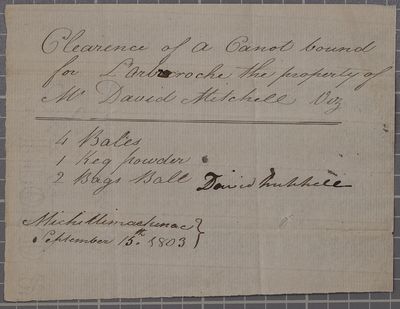 Clearence of a Canot bound
for L'arbroche the property of
Mr David Mitchell Viz
4 Bales
1 Keg powder
2 Bags Ball David Mitchell
Michilimackinac
September 15th. 1803